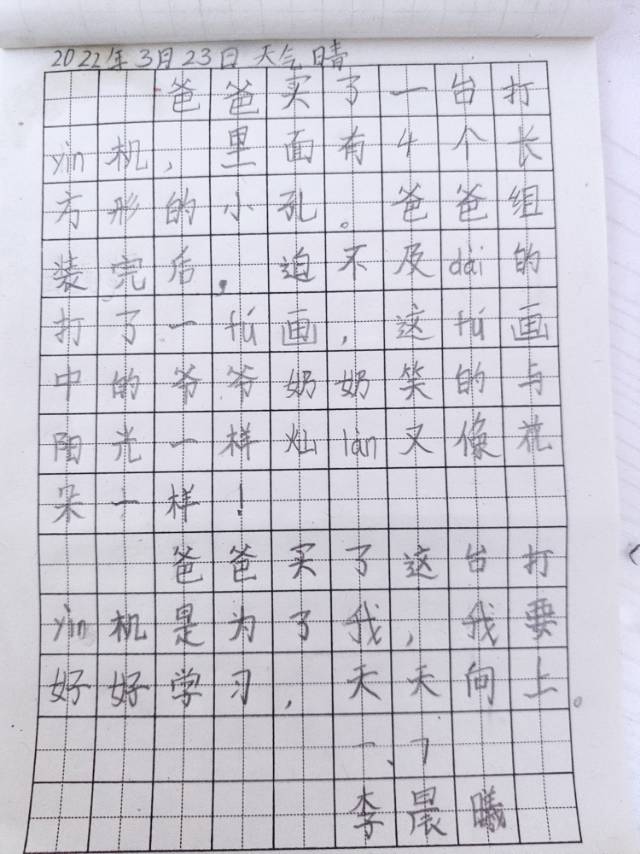 2022年3月23日 天气晴
爸爸买了一台打
yìn机，里面有4个长
方形的小孔。爸爸组
装完后，迫不及dài的
打了一fú画，这fú画
中的爷爷奶奶笑的与
阳光一样灿làn又像花
朵一样！
爸爸买了这台打
yìn机是为了我，我要
好好学习，天天向上。
一、7
李晨曦